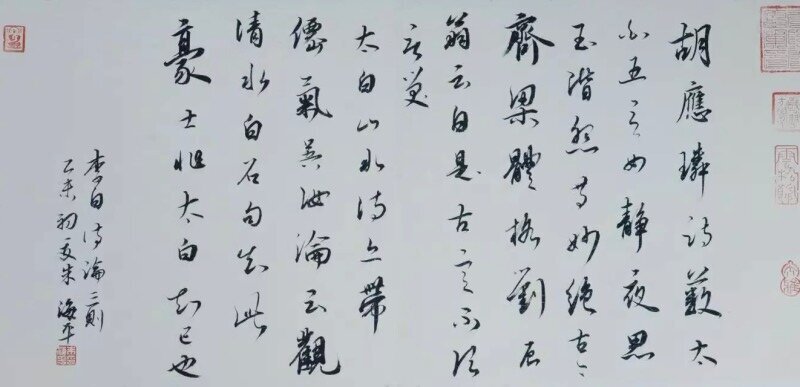 胡應璘詩藪太
白五言如靜夜思
玉階怨等妙絕古今
齊梁體格劉辰
翁云自是古意不須
言笑
太白山水詩亦帶
僊氣吳汝淪云觀
清水白石句知此
豪士惟太白知己也
李白詩論三則
乙未初夏朱海平